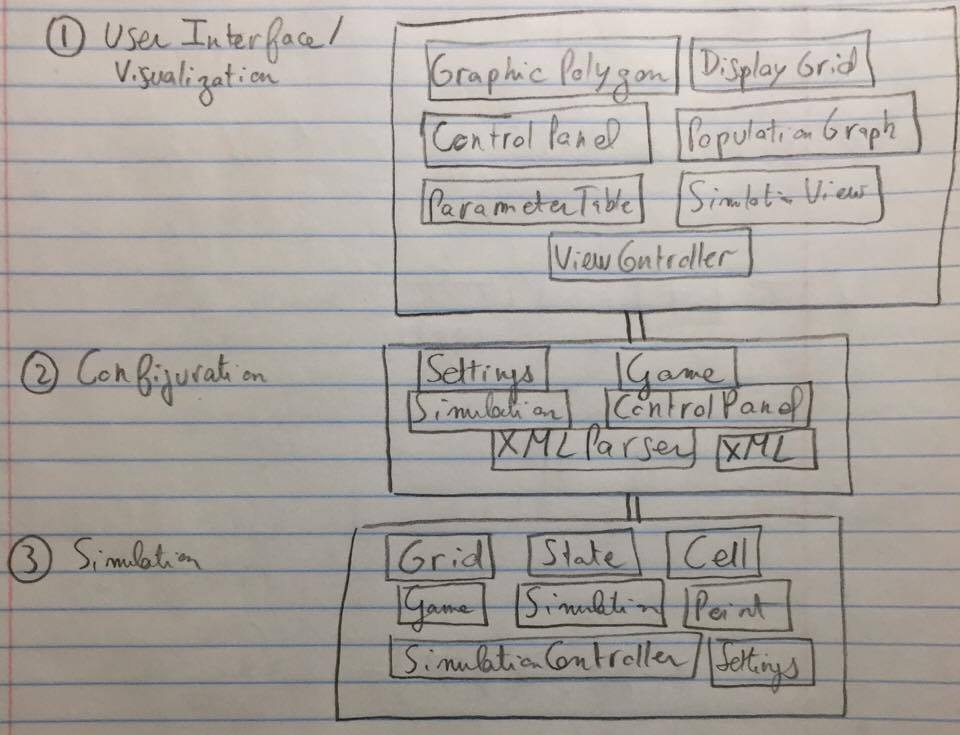 ① User Interface/
Visualization
Graphic Polygon Display Grid
Control Panel Population Graph
Parameter Table Simulation View
View Controller
② Configuration
Settings Game
Simulation Control Panel
XML Parser XML
③ Simulation
Grid State Cell
Game Simulation Point
Simulation Controller Settings